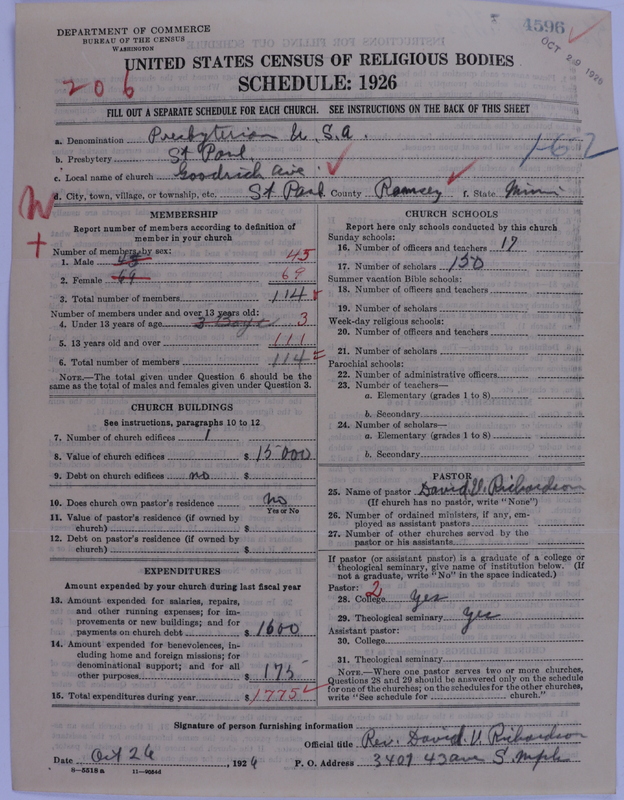 DEPARTMENT OF COMMERCE
BUREAU OF THE CENSUS
WASHINGTON
4596
OCT 29 1926
UNITED STATES CENSUS OF RELIGIOUS BODIES
SCHEDULE: 1926
206
FILL OUT A SEPARATE SCHEDULE FOR EACH CHURCH. SEE INSTRUCTIONS ON THE BACK OF THIS SHEET
a. Denomination Presbyterian U.S.A.
1-62
b. Presbytery St Paul
c. Local name of church Goodrich Ave
d. City, town, village, or township, etc. St Paul County Ramsey f. State Minn
MEMBERSHIP
Report number of members according to definition of
member in your church
Number of members by sex:
1. Male 45 45
2. Female 69 69
3. Total number of members 114
Number of members under and over 13 years old:
4. Under 13 years of age 3 Boys 3
5. 13 years old and over 111
6. Total number of members 114
NOTE.—The total given under Question 6 should be the
same as the total of males and females given under Question 3.
CHURCH BUILDINGS
See instructions, paragraphs 10 to 12
7. Number of church edifices 1
8. Value of church edifices $ 15000
9. Debt on church edifices no $
10. Does church own pastor's residence no
Yes or No
11. Value of pastor's residence (if owned by
church) $
12. Debt on pastor's residence (if owned by
church) $
EXPENDITURES
Amount expended by your church during last fiscal year
13. Amount expended for salaries, repairs,
and other running expenses; for im-
provements or new buildings; and for
payments on church debt $ 1600
14. Amount expended for benevolences, in-
cluding home and foreign missions; for
denominational support; and for all
other purposes $ 175
15. Total expenditures during year $ 1775
CHURCH SCHOOLS
Report here only schools conducted by this church
Sunday schools:
16. Number of officers and teachers 17
17. Number of scholars 150
Summer vacation Bible schools:
18. Number of officers and teachers
19. Number of scholars
Week-day religious schools:
20. Number of officers and teachers
21. Number of scholars
Parochial schools:
22. Number of administrative officers
23. Number of teachers—
a. Elementary (grades 1 to 8)
b. Secondary
24. Number of scholars—
a. Elementary (grades 1 to 8)
b. Secondary
PASTOR
25. Name of pastor David V. Richardson
(If church has no pastor, write "None")
26. Number of ordained ministers, if any, em-
ployed as assistant pastors
27. Number of other churches served by the
pastor or his assistants
If pastor (or assistant pastor) is a graduate of a college or
theological seminary, give name of institution below. (If
not a graduate, write "No" in the space indicated.)
Pastor: 2
28. College Yes
29. Theological seminary Yes
Assistant pastor:
30. College
31. Theological seminary
NOTE.—Where one pastor serves two or more churches,
Questions 28 and 29 should be answered only on the schedule
for one of the churches; on the schedules for the other churches,
write "See schedule for church."
Signature of person furnishing information
Official title Rev. David V. Richardson
Date Oct 26, 1926 P. O. Address 3407 43 ave S. Mpls
8—5518 a 11—90544